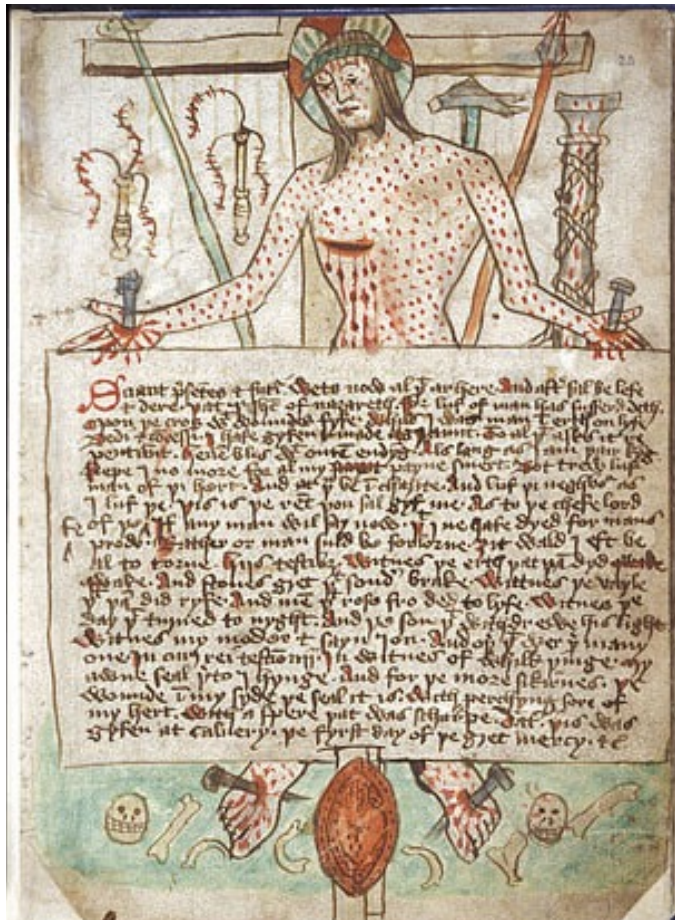 Sciant p'sentes & futuri Wets now al þt ar here. And aft' sal be lefe
& dere. þat I ihc of nazareth. For luf of man has sufferd deth.
Opon þe cros wt woundes fyfe. Whils I was man in erth on lyfe
Dedi & concessi. I hafe gyfen & made a graunt. To al þt askes it re
pentant. Heuen blis wt outen endyng. Als lang as I am þair kyng
Kepe I no more for al my payne smert. Bot trew luf
man of þi hert. And at þu be in charite. And luf þi neghbur as
I luf þe. þis is þe rent þou sal gyf me. As to þe chefe lord
of þe fe. If any man wil say now. þt I ne hafe dyed for mans
prow. Rather or man suld be forlorne. Yit wald I eft be
al to torne. Hijs testibus. Witnes þe erth þat þan dyd
qwake. And stones gret þt sondir brake. Wittnes þe vayle
þt þan did ryfe. And men þt rose fro ded to lyfe. Witnes þe
day þt turned to nyght. And þe son þt withdrewe his light
Witnes my moder & saynt Ion. And oþer þt wer þer many
one. In cuius rei testimonii. In witnes of whilk þinge. My
awne seal þerto I hynge. And for þe more sikirnes. þe
wounde in my syde þe seal it is. With perchyng sore of
my hert. With a spere þat was scharpe. Dat' þis was
gyfen at Caluery. þe fyrst day of þe gret mercy. &c